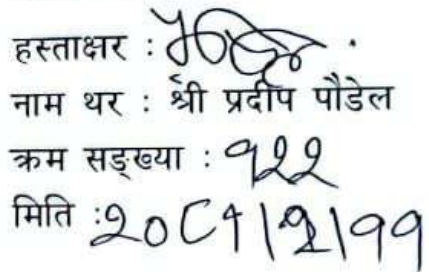 हस्ताक्षर :
नाम थर : श्री प्रदीप पौडेल
क्रम सङ्ख्या : १२२
मिति :२०८१|२|११